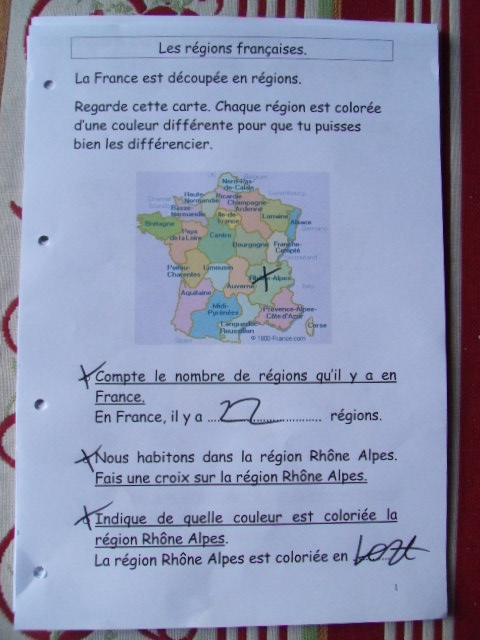 Les régions françaises.
La France est découpée en régions.
Regarde cette carte. Chaque région est colorée
d'une couleur différente pour que tu puisses
bien les différencier.
Nord-Pas-
de-Calais
Haute-
Normandie
Picardie
Basse-
Normandie
Ile-de-
France
Champagne
Ardenne
Lorraine
Alsace
Bretagne
Pays
de la Loire
Centre
Bourgogne
Franche-
Compté
Poitou-
Charentes
Limousin
Auvergne
Rhône-Alpes
Aquitaine
Midi-
Pyrénées
Languedoc-
Roussillon
Provence-Alpes-
Côte d'Azur
Corse
© 1800-France.com
Compte le nombre de régions qu'il y a en
France.
En France, il y a .......22............... régions.
Nous habitons dans la région Rhône Alpes.
Fais une croix sur la région Rhône Alpes.
Indique de quelle couleur est coloriée la
région Rhône Alpes.
La région Rhône Alpes est coloriée en
1